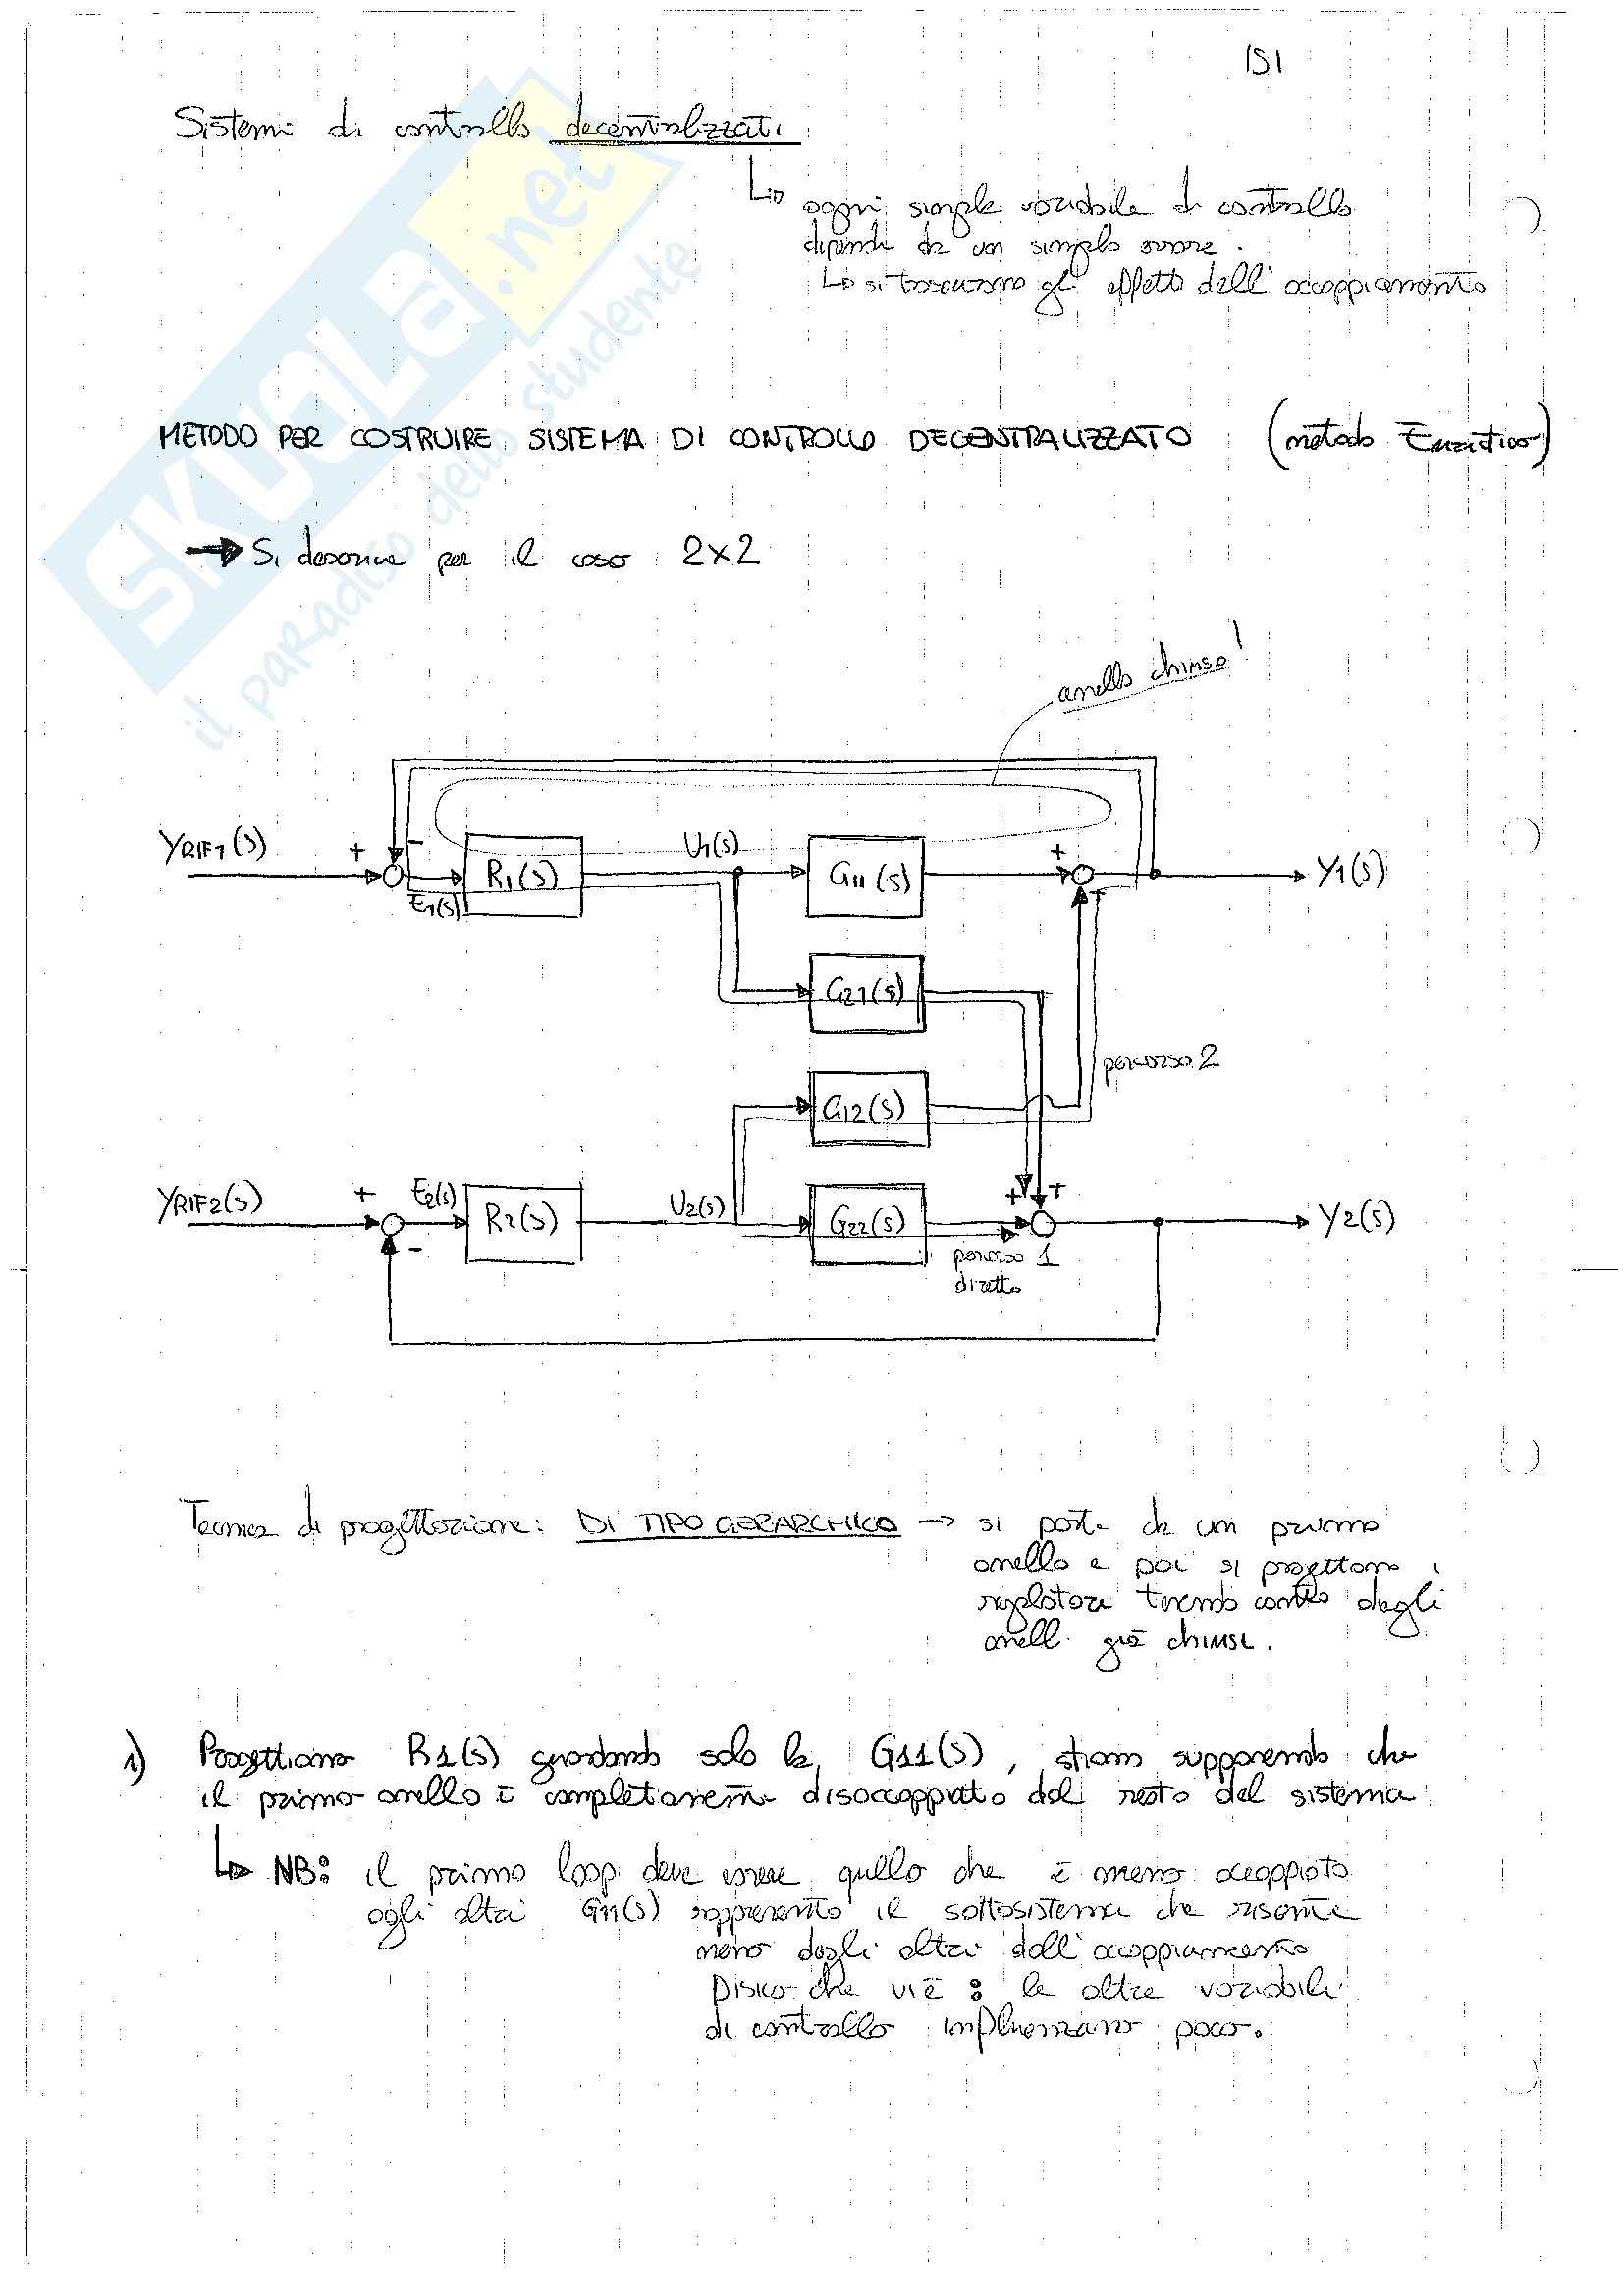 151
Sistemi di controllo decentralizzati
ogni singola variabile di controllo
dipende da un singolo errore.
si trascurano gli effetti dell'accoppiamento
METODO PER COSTRUIRE SISTEMA DI CONTROLLO DECENTRALIZZATO (metodo Euristico)
Si descrive per il caso 2x2
anello chiuso!
YRIF1(s) + - E1(s) R1(s) U1(s) G11(s) + + Y1(s)
G21(s)
percorso 2
G12(s)
YRIF2(s) + - E2(s) R2(s) U2(s) G22(s) + + Y2(s)
percorso 1
diretto
Tecnica di progettazione: DI TIPO GERARCHICO → si parte da un primo
anello e poi si progettano i
regolatori tenendo conto degli
anelli già chiusi.
1) Progettiamo R1(s) guardando solo la G11(s), stiamo supponendo che
il primo anello è completamente disaccoppiato dal resto del sistema
NB: il primo loop deve essere quello che è meno accoppiato
agli altri G11(s) rappresenta il sottosistema che risente
meno degli altri dall'accoppiamento
Dico che vi è : le altre variabili
di controllo influenzano poco.
SKUOLA.net
il paradiso dello studente